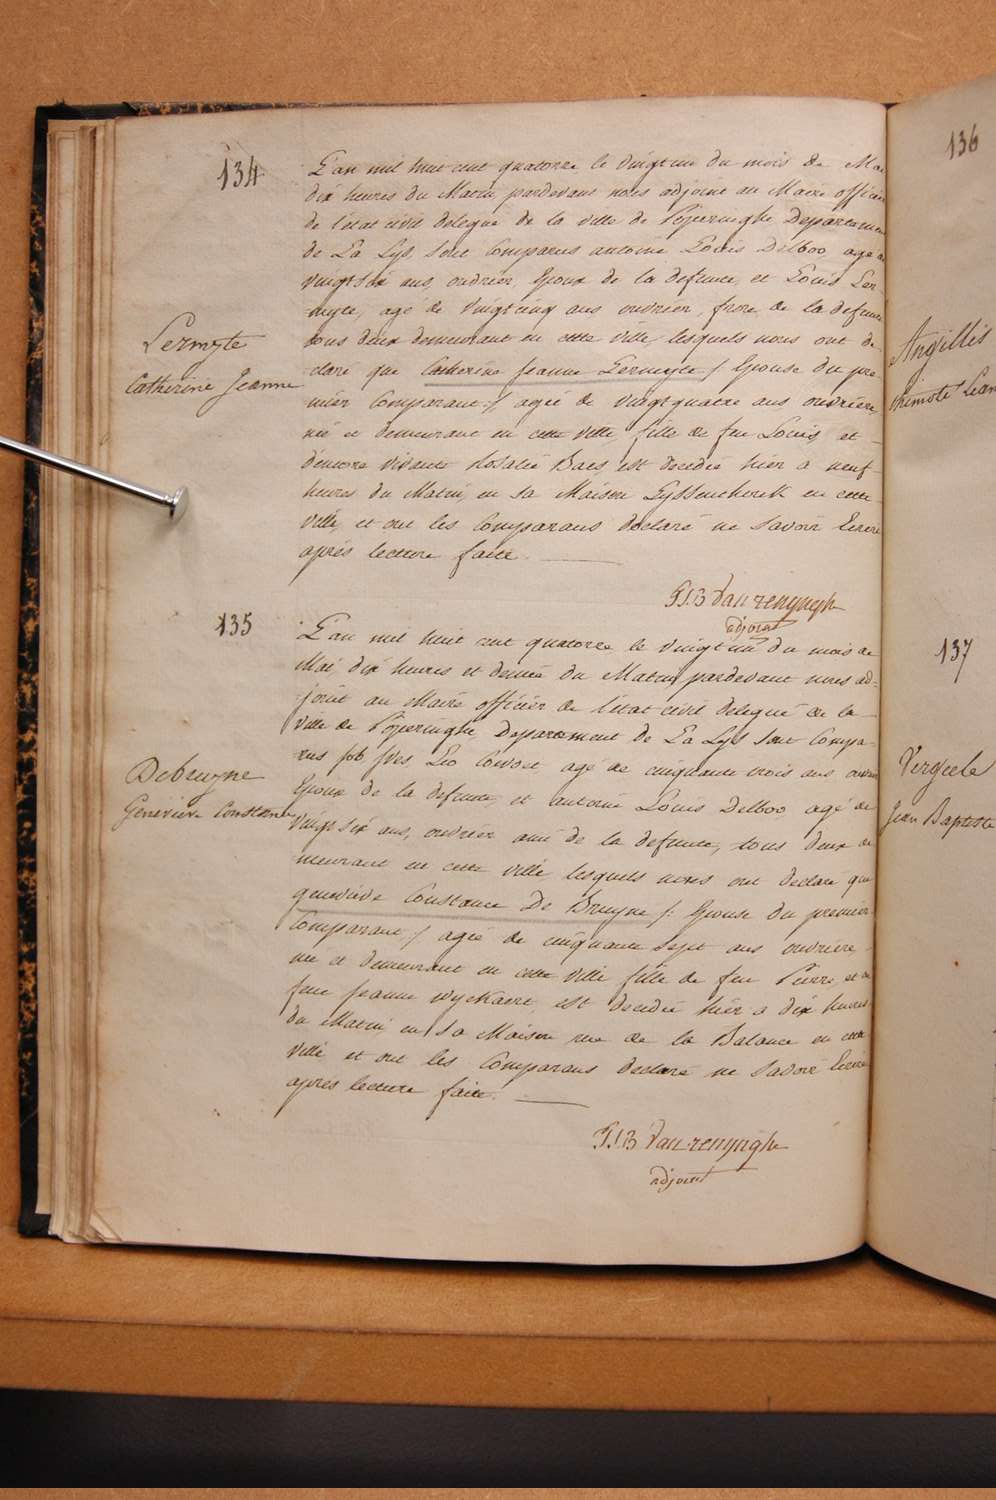 134
L'an mil huit cent quatorze le vingt un du mois de Mai
dix heures du Matin pardevant nous adjoint au Maire officier
de l'état civil delegué de la ville de Poperinghe Departement
de La Lys, sont Comparus antoine Louis Delboo, agé de
vingt six ans, ouvrier, Epoux de la defunte, et Louis Ler-
myte, agé de vingt cinq ans ouvrier, frere de la defunte
tous deux demeurant en cette ville, lesquels nous ont de-
claré que Catherine Jeanne Lermyte /: Epouse du pre-
mier Comparant :/ agée de vingt quatre ans ouvrière,
née et demeurant en cette ville, fille de feu Louis, et
d'encore vivante Rosalie Baes, est decedée hier a neuf
heures du Matin, en sa Maison en cette
ville, et ont les Comparans declaré ne savoir Ecrire
après lecture faite.
P.J.B Van renynghe
adjoint
Lermyte
Catherine Jeanne
135
L'an mil huit cent quatorze le vingt un du mois de
Mai, dix heures et demie du Matin, pardevant nous ad-
joint au Maire officier de l'état civil delegué de la
ville de Poperinghe, Departement de La Lys sont Compa-
rus Yves Leo agé de cinquante trois ans ouvrier
Epoux de la defunte, et antoine Louis Delboo agé de
vingt six ans, ouvrier ami de la defunte, tous deux de
meurant en cette ville lesquels nous ont declaré que
geneviève Constance De Bruyne /: Epouse du premier
Comparant :/ agée de cinquante sept ans ouvrière,
née et demeurant en cette ville fille de feu Pierre, et de
feue Jeanne Wyckaert, est decedée hier a dix heures
du Matin, en sa Maison rue de la Balance en cette
ville et ont les Comparans declaré ne savoir Ecrire
après lecture faite.
P.J.B Van renynghe
adjoint
Debruyne
Geneviève Constance
136
Angillis
137
Vergeele
Jean Baptiste